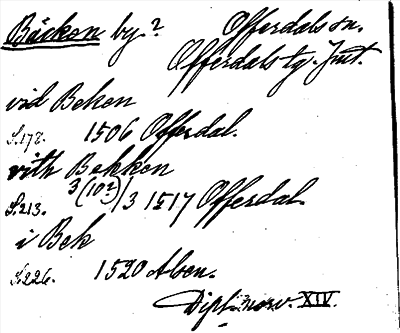 Bäcken by? Offerdals sn.
Offerdals tg. Jmt.
vid Beken
S.178. 1506 Offerdal.
vith Bekken
S.213. 3 (10?)/3 1517 Offerdal.
i Bek
S.226. 1520 Aben.
Dipl. norv. XIV.